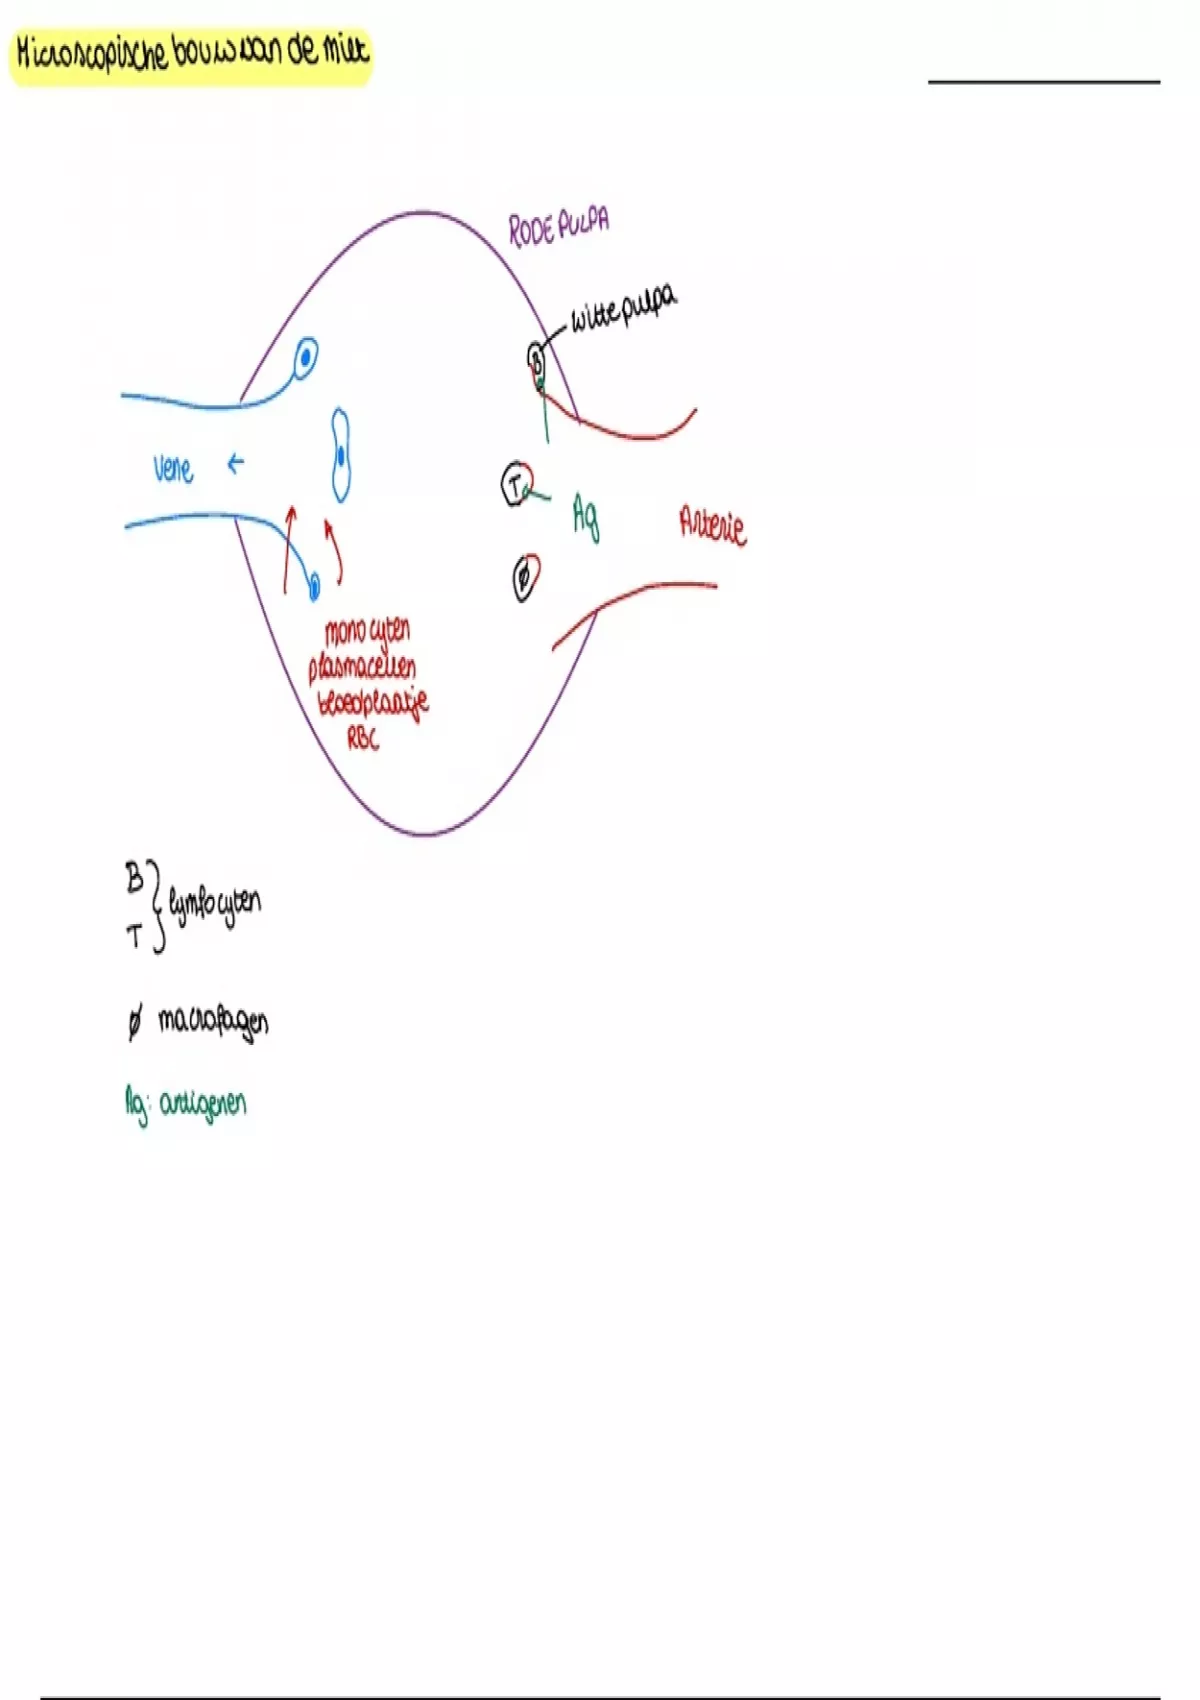 Microscopische bouw van de milt
RODE PULPA
witte pulpa
B
vene ←
T
Ag
Arterie
ø
monocyten
plasmacellen
bloedplaatje
RBC
B
T } lymfocyten
ø macrofagen
Ag: antigenen